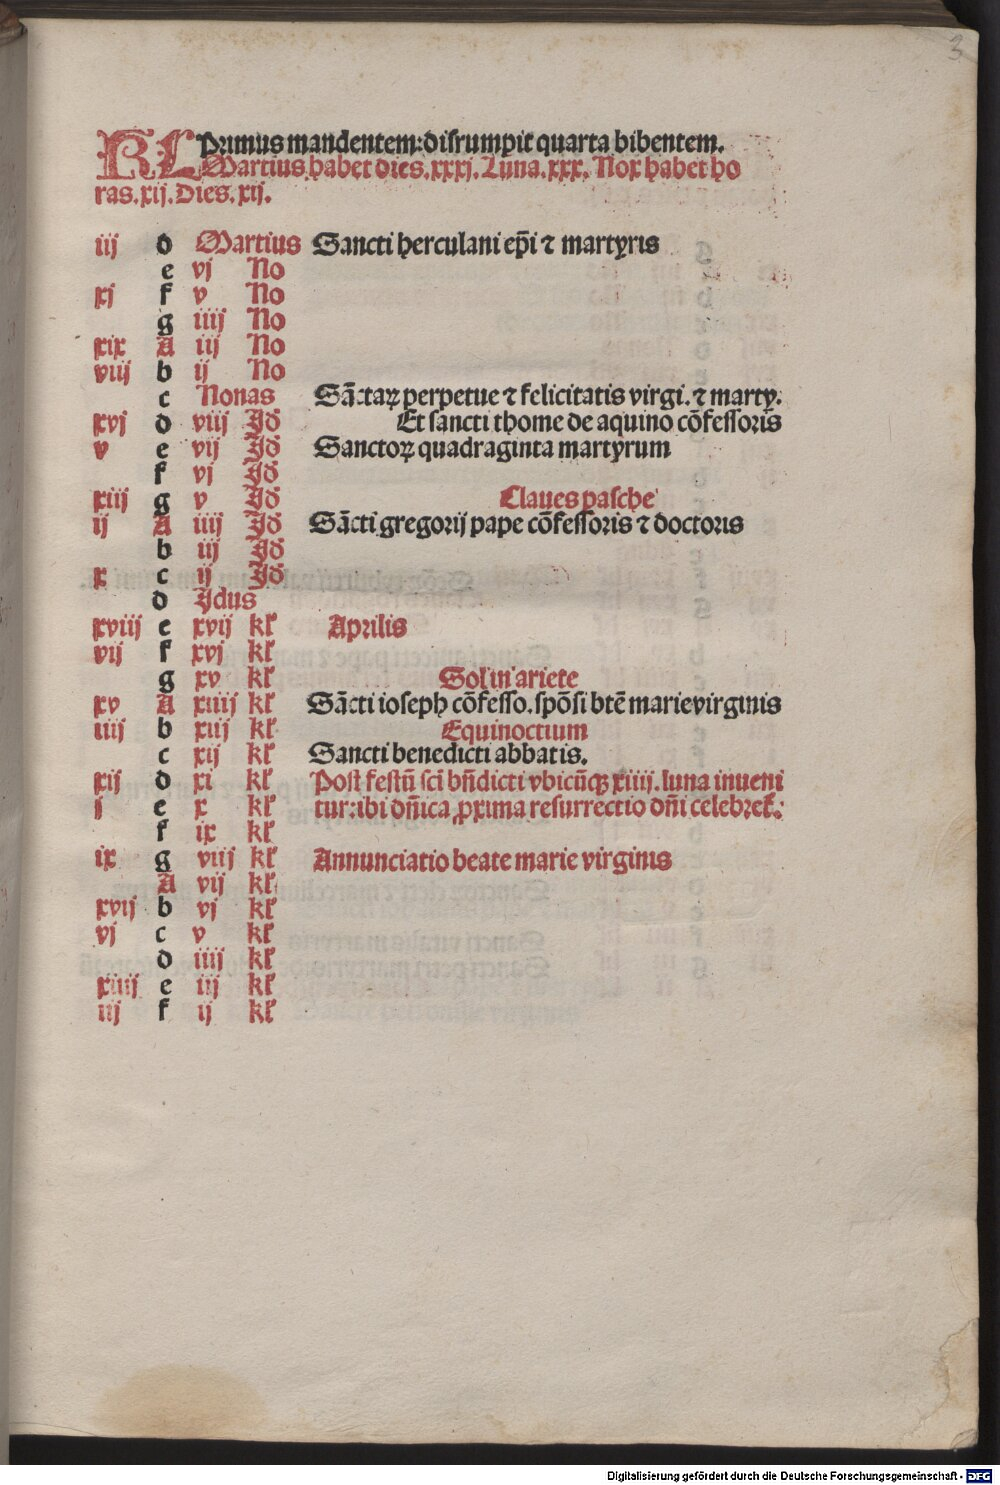 3
KL Primus mandentem: disrumpit quarta bibentem.
Martius habet dies. xxxj. Luna. xxx. Nox habet ho
ras. xij. Dies. xij.
iij d Martius Sancti herculani ep̄i ⁊ martyris
e vj No
xj f v No
g iiij No
xix A iij No
viij b ij No
c Nonas Sāctaꝝ perpetue ⁊ felicitatis virgi. ⁊ marty.
xvj d viij Jd Et sancti thome de aquino cōfessoris
v e vij Jd Sanctoꝝ quadraginta martyrum
f vj Jd
xiij g v Jd Claues pasche
ij A iiij Jd Sācti gregorij pape cōfessoris ⁊ doctoris
b iij Jd
x c ij Jd
d Jdus
xviij e xvij kł Aprilis
vij f xvj kł
g xv kł Sol in ariete
xv A xiiij kł Sācti ioseph cōfesso. spōsi btē marie virginis
iiij b xiij kł Equinoctium
c xij kł Sancti benedicti abbatis.
xij d xj kł Post festū scī bn̄dicti vbicūqꝫ xiiij. luna inueni
j e x kł tur: ibi dn̄ica ꝓxima resurrectio dn̄i celebret̄.
f ix kł
ix g viij kł Annunciatio beate marie virginis
A vij kł
xvij b vj kł
vj c v kł
d iiij kł
xiiij e iij kł
iij f ij kł
Digitalisierung gefördert durch die Deutsche Forschungsgemeinschaft - DFG